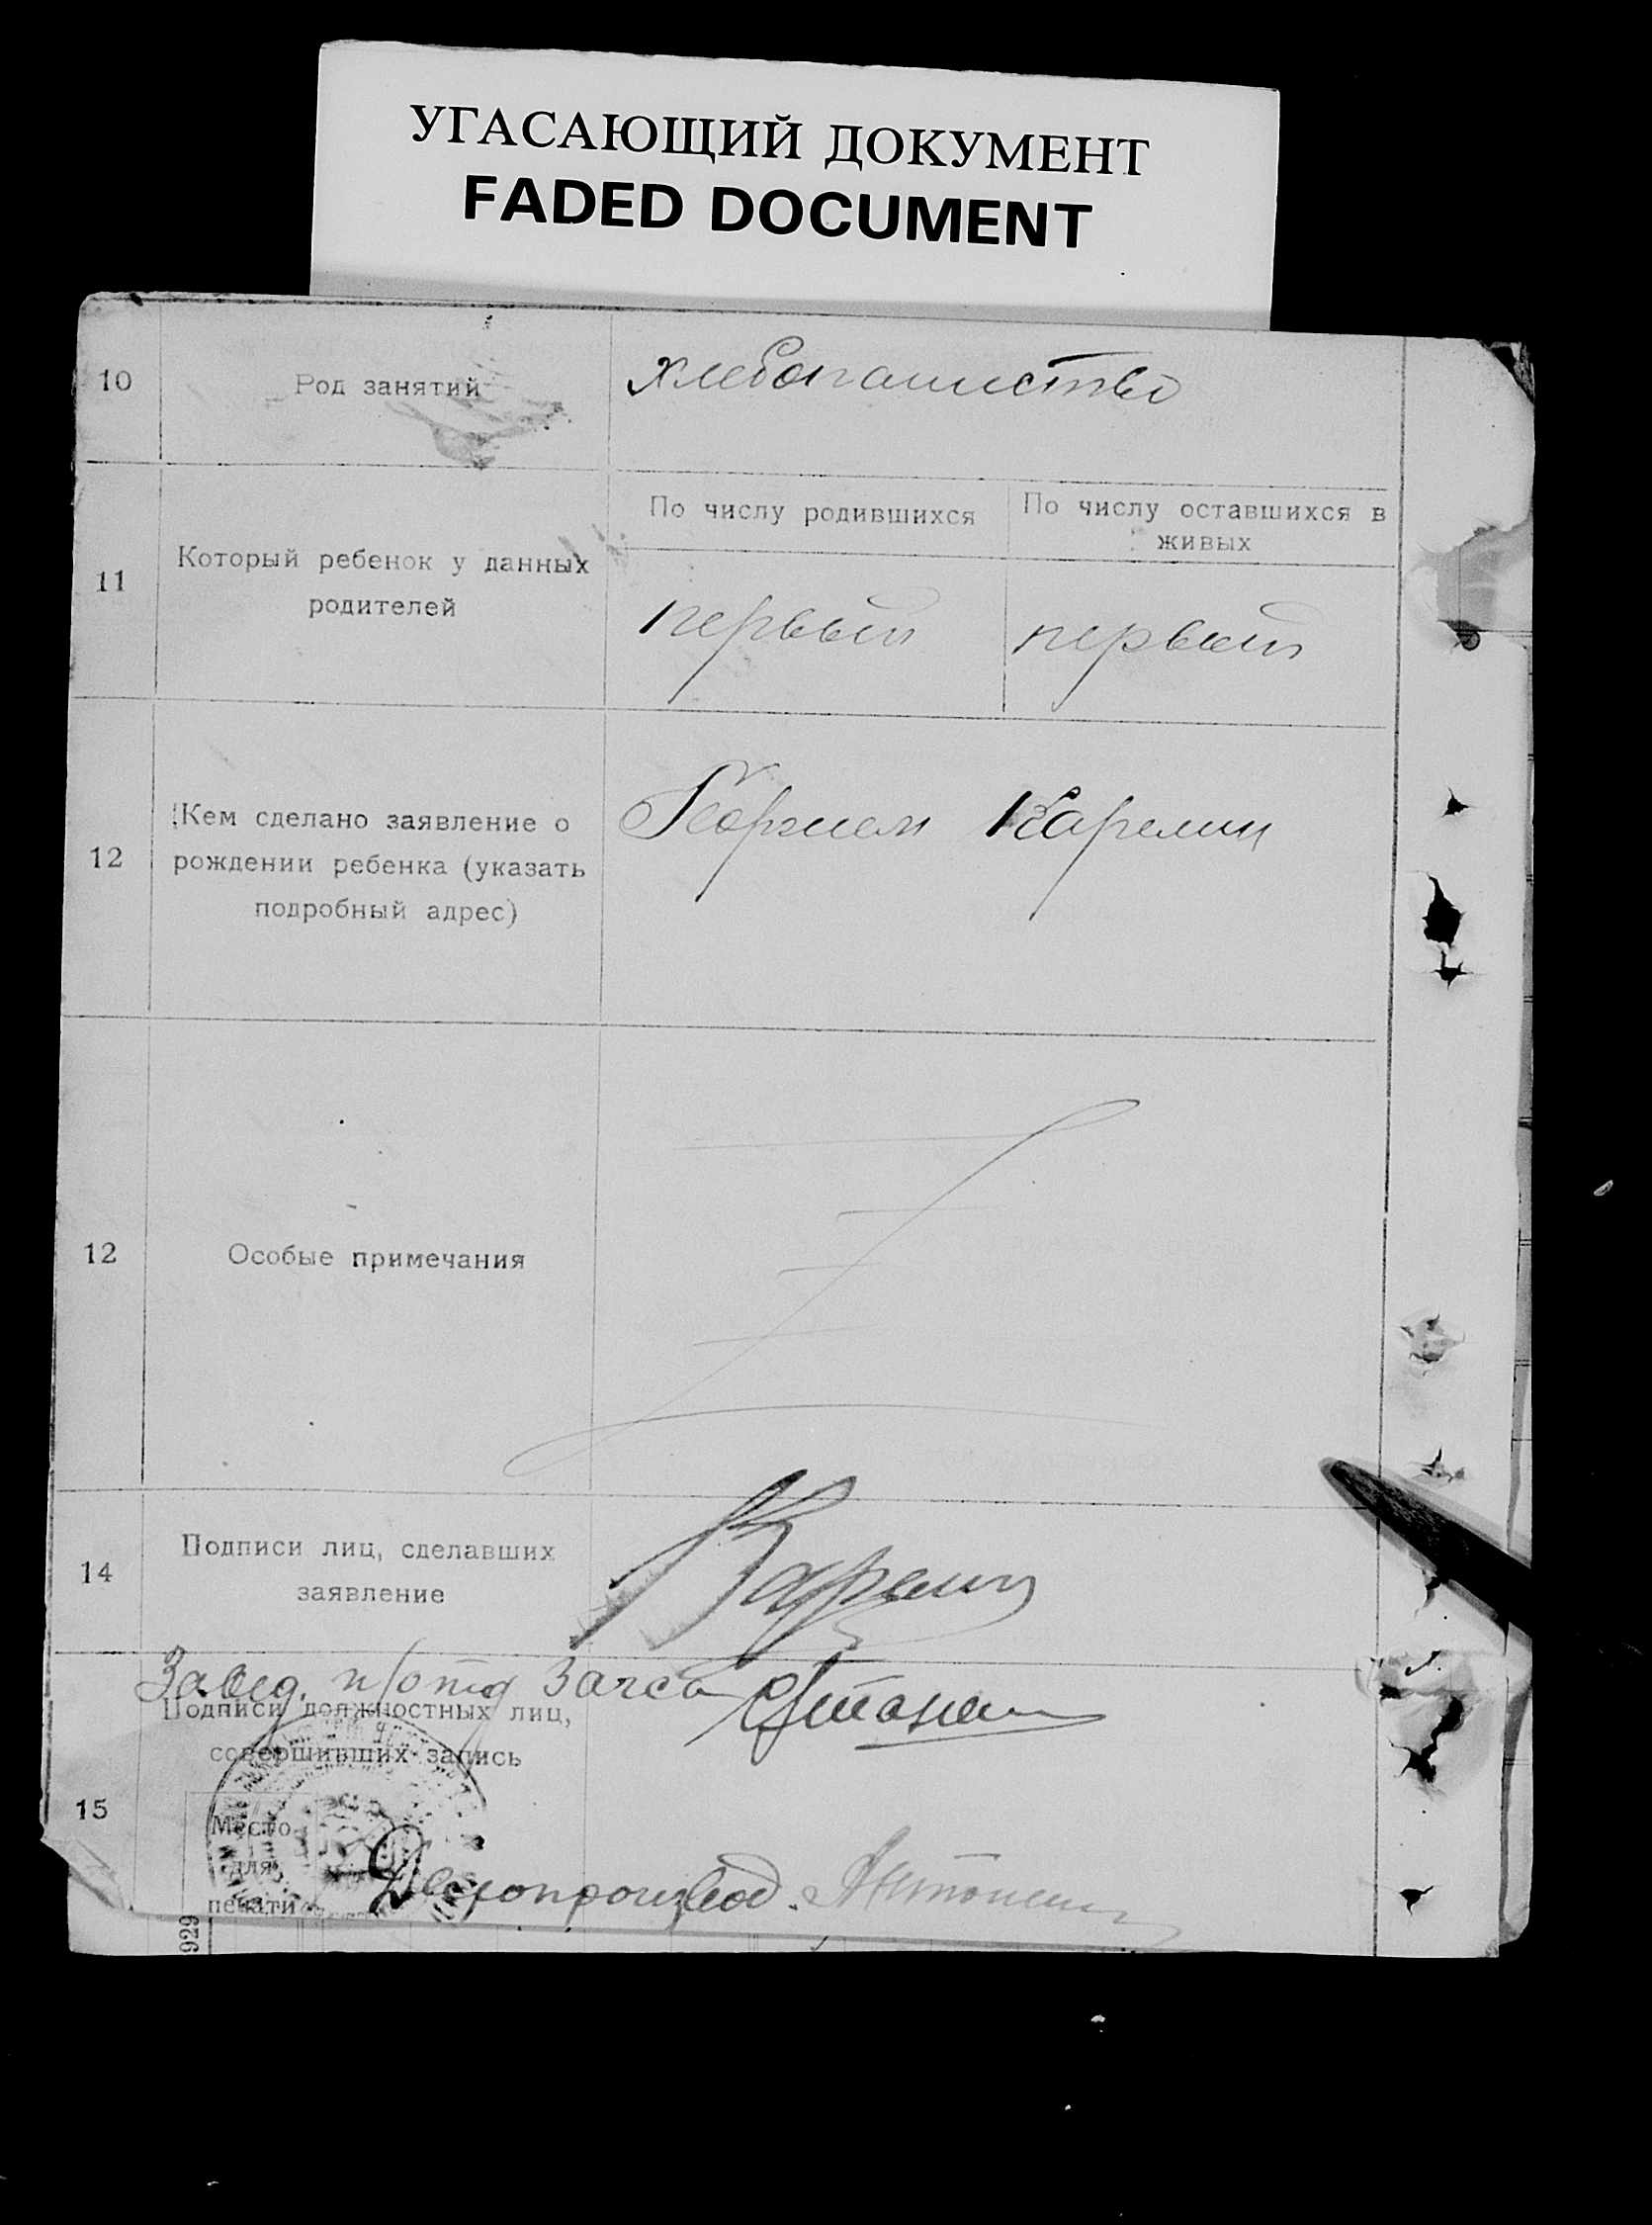 УГАСАЮЩИЙ ДОКУМЕНТ
FADED DOCUMENT
10
Род занятий
хлебопашество
11
Который ребенок у данных
родителей
По числу родившихся
По числу оставшихся в
живых
первый
первый
12
Кем сделано заявление о
рождении ребенка (указать
подробный адрес)
Георгием Карелин
12
Особые примечания
14
Подписи лиц, сделавших
заявление
Карелин
Завед. п/отд Загса
15
Подписи должностных лиц,
совершивших запись
Место
для
печати
Делопроизвод.
929